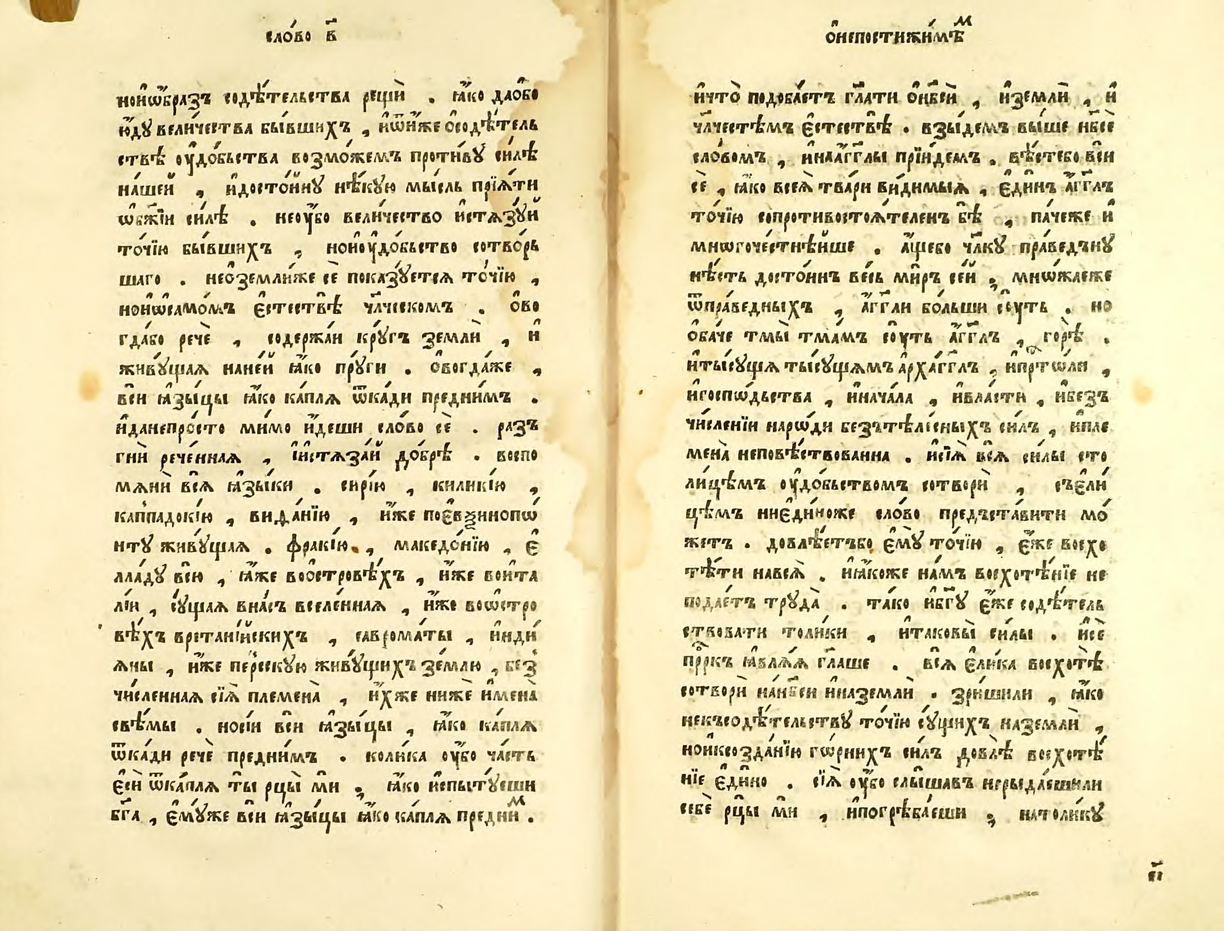 сло́во в҃
но́ и҆ ѡ҆́бразъ содѣ́тельства рещѝ . ꙗ҆́ко да ѿбо
ю́дꙋ вели́чества бы́вшихъ , и҆ ѿню́же ѡ҆ содѣ́тель
ствѣ ᲂу҆до́бьства возмо́жемъ проти́вꙋ си́лѣ
на́шей , и҆ досто́йнꙋ нѣ́кꙋю мы́сль прїѧ́ти
ѡ҆ бж҃їи си́лѣ . не ᲂу҆́бо вели́чество и҆стѧзꙋ́й
то́чїю бы́вшихъ , но́ и҆ ᲂу҆до́бьство сотво́рь
шаго . не ѡ҆ земли́ же сѐ показꙋ́етсѧ то́чїю ,
но́ и҆ ѡ҆ само́мъ є҆стествѣ̀ чл҃ческомъ . ѻ҆во
гда́ бо речѐ , содержа́й крꙋ́гъ землѝ , и҆
живꙋ́щаѧ на не́й ꙗ҆́ко прꙋ́ги . ѻ҆вогда́ же ,
всѝ ꙗ҆зы́цы ꙗ҆́ко ка́плѧ ѿ ка́ди пре́дни́мъ .
и҆ да не про́сто ми́мо и҆́деши сло́во сѐ . раз̾
гнѝ рече́ннаѧ , и҆ и҆стѧза́й до́брѣ . воспо
мѧнѝ всѧ̀ ꙗ҆зы́ки . си́рїю , кили́кїю ,
каппадокі́ю , виѳа́нїю , и҆̀же по є҆ѵѯинопѡ
нтꙋ̀ живꙋ́щаѧ . фракі́ю , македо́нїю , є҆
лла́дꙋ всю̀ , ꙗ҆̀же во ѻ҆стровѣ́хъ , и҆̀же во и҆та
лі́и , сꙋ́щаѧ в на́съ вселе́ннаѧ , и҆̀же во ѡ҆стро
вѣ́хъ врета́нїйскихъ , савро́маты , и҆нді́
ѧны , и҆̀же пе́рсскꙋю живꙋ́щихъ зе́млю , без̾
чи́сленнаѧ сїѧ̀ племена̀ , и҆́хже нижѐ и҆мена̀
свѣ́мы . но сі́и всѝ ꙗ҆зы́цы , ꙗ҆́ко ка́плѧ
ѿ ка́ди речѐ пре́дни́мъ . коли́ка ᲂу҆́бо ча́сть
є҆сѝ ѿ ка́плѧ ты̀ рцы́ ми , ꙗ҆́ко и҆спы́тꙋеши
бг҃а , є҆мꙋ́же всѝ ꙗ҆зы́цы ꙗ҆́ко ка́плѧ пре́дниⷨ .
ѡ҆ непостижи́мѣⷨ
и҆ что̀ подоба́етъ гл҃ати ѡ҆ нб҃сѝ , и҆ землѝ , и҆
чл҃честѣмъ є҆стествѣ̀ . взы́демъ вы́ше нб҃се
сло́вомъ , и҆ на а҆́гг҃лы прїи́демъ . вѣ́сте бо всѝ
сѐ , ꙗ҆́ко всеѧ̀ тва́ри ви́димыѧ , є҆ди́нъ а҆́гг҃лъ
то́чїю сопротивостоѧ́теленъ бѣ̀ , па́че же и҆
мно́гочестнѣ́йше . а҆́ще бо чл҃кꙋ пра́ведънꙋ
нѣ́сть досто́инъ ве́сь ми́ръ се́й , мно́жае же
ѿ пра́ведныхъ , а҆́гг҃ли бо́льши сꙋ́ть . но
ѻ҆ба́че тмы̀ тма́мъ сꙋ́ть а҆́гг҃лъ , го́рѣ .
и҆ ты́сꙋщѧ ты́сꙋщѧмъ а҆рха́гг҃лъ , и҆ прⷭ҇то́ли ,
и҆ госпѡ́дьства , и҆ нача́ла , и҆ вла́сти , и҆ без̾
чи́сленїи наро́ди без̾тѣле́сныхъ си́лъ , и҆ пле
мена̀ неповѣ́ствованна . и҆ сїѧ̀ всѧ̀ си́лы сто
ли́цѣмъ ᲂу҆до́бьствомъ сотворѝ , съ є҆ли́
цѣмъ ни є҆ди́ноже сло́во предъста́вити мо́
жетъ . довлѣ́етъ бо є҆мꙋ̀ то́чїю , є҆́же восхо
тѣ́ти на всѧ̀ . и҆ ꙗ҆́коже на́мъ восхотѣ́нїе не
пода́етъ трꙋда̀ . та́ко и҆ бг҃ꙋ є҆́же содѣ́тель
ствовати толи́ки , и҆ таковы̀ си́лы . и҆ сѐ
прⷪ҇ро́къ ꙗ҆влѧ́ѧ гл҃аше . всѧ̀ є҆ли́ка восхотѣ̀
сотворѝ на нб҃сѝ и҆ на землѝ . зри́ши ли , ꙗ҆́ко
не къ содѣ́тельствꙋ то́чїю сꙋ́щихъ на землѝ ,
но́ и҆ к созда́нїю го́рнихъ си́лъ довлѣ̀ восхотѣ́
нїе є҆ди́но . сїѧ̀ ᲂу҆́бо слы́шавъ не рыда́еши ли
себѐ рцы́ ми , и҆ погреба́еши , на толи́кꙋ
є҃і